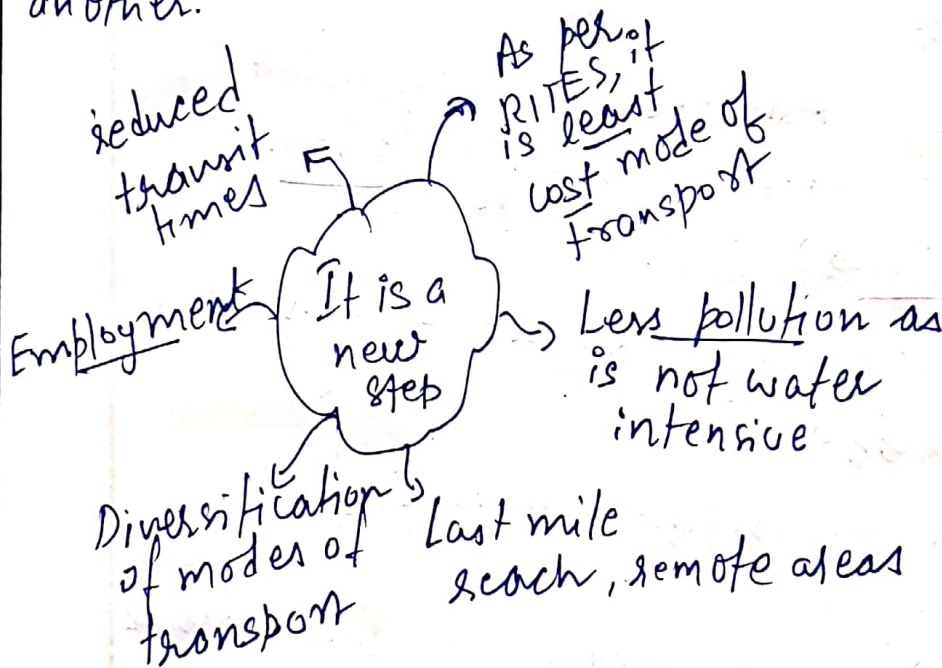 another.
reduced
transit
times
As per
RITES, it
is least
cost mode of
transport
Employment
It is a
new
step
Less pollution as
is not water
intensive
Diversification
of modes of
transport
Last mile
reach, remote areas